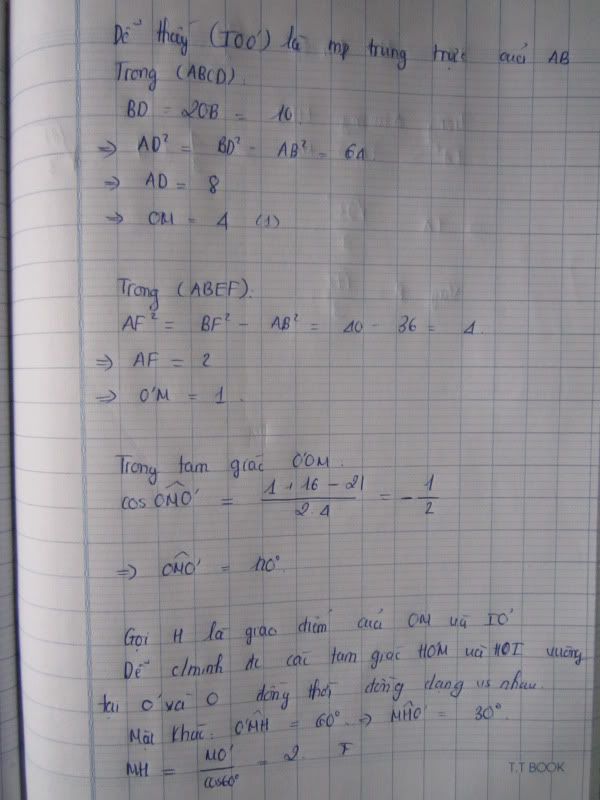 Dễ thấy (IOO') là mp trung trực của AB
Trong (ABCD).
BD = 2OB = 10
⇒ AD² = BD² - AB² = 64
⇒ AD = 8
⇒ OM = 4 (1)
Trong (ABEF).
AF² = BF² - AB² = 40 - 36 = 4.
⇒ AF = 2
⇒ O'M = 1.
Trong tam giác O'OM.
cos OMO' = (1 + 16 - 21)/(2.4) = -1/2
⇒ OMO' = 120°.
Gọi H là giao điểm của OM và IO'
Dễ c/minh đc các tam giác HO'M và HOI vuông
tại O' và O đồng thời đồng dạng vs nhau.
Mặt khác: O'MH = 60° ⇒ MHO' = 30°.
MH = MO'/cos60° = 2.
T.T BOOK